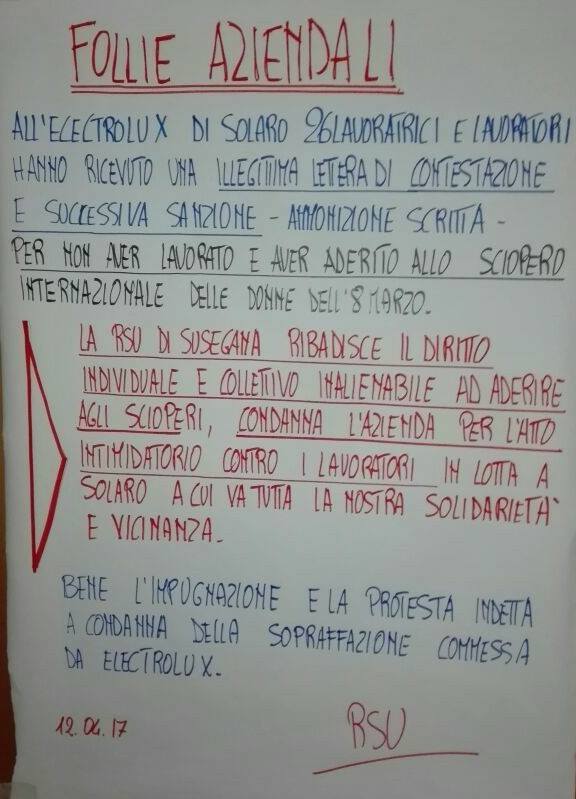 FOLLIE AZIENDALI
ALL'ELECTROLUX DI SOLARO 26 LAVORATRICI E LAVORATORI
HANNO RICEVUTO UNA ILLEGITTIMA LETTERA DI CONTESTAZIONE
E SUCCESSIVA SANZIONE - AMMONIZIONE SCRITTA -
PER NON AVER LAVORATO E AVER ADERITO ALLO SCIOPERO
INTERNAZIONALE DELLE DONNE DELL'8 MARZO.
LA RSU DI SUSEGANA RIBADISCE IL DIRITTO
INDIVIDUALE E COLLETTIVO INALIENABILE AD ADERIRE
AGLI SCIOPERI, CONDANNA L'AZIENDA PER L'ATTO
INTIMIDATORIO CONTRO I LAVORATORI IN LOTTA A
SOLARO A CUI VA TUTTA LA NOSTRA SOLIDARIETÀ
E VICINANZA.
BENE L'IMPUGNAZIONE E LA PROTESTA INDETTA
A CONDANNA DELLA SOPRAFFAZIONE COMMESSA
DA ELECTROLUX.
12.04.17
RSU